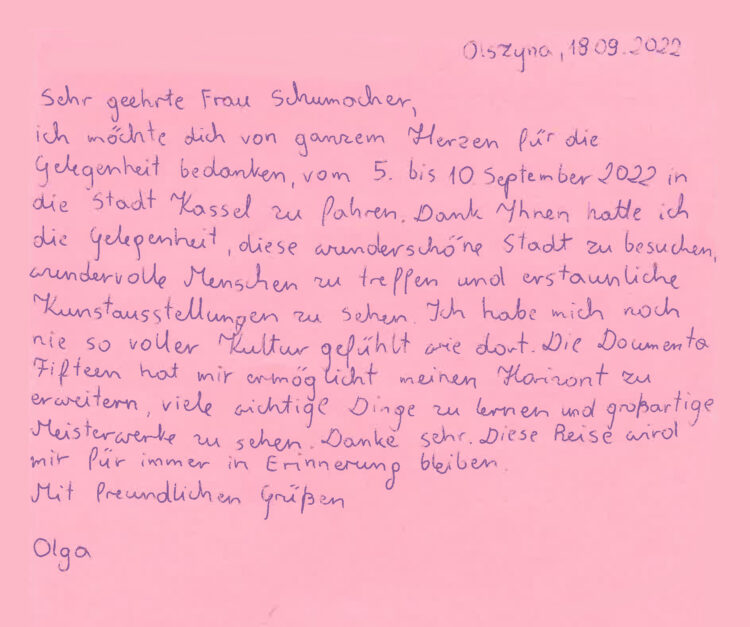 Olszyna, 18 09. 2022
Sehr geehrte Frau Schumacher,
ich möchte dich von ganzem Herzen für die
Gelegenheit bedanken, vom 5. bis 10. September 2022 in
die Stadt Kassel zu fahren. Dank Ihnen hatte ich
die Gelegenheit, diese wunderschöne Stadt zu besuchen,
wundervolle Menschen zu treffen und erstaunliche
Kunstausstellungen zu sehen. Ich habe mich noch
nie so voller Kultur gefühlt wie dort. Die Documenta
Fifteen hat mir ermöglicht meinen Horizont zu
erweitern, viele wichtige Dinge zu lernen und großartige
Meisterwerke zu sehen. Danke sehr. Diese Reise wird
mir für immer in Erinnerung bleiben.
Mit freundlichen Grüßen
Olga